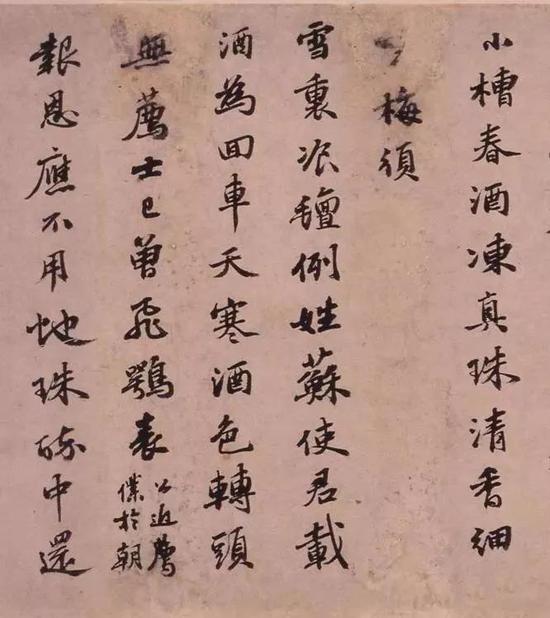 小槽春酒凍真珠清香細
梅須
雪裏飡氊例姓蘇使君載
酒為回車天寒酒色轉頭
無薦士已曾飛鶚表公近薦僕於朝
報恩應不用虵珠醉中還